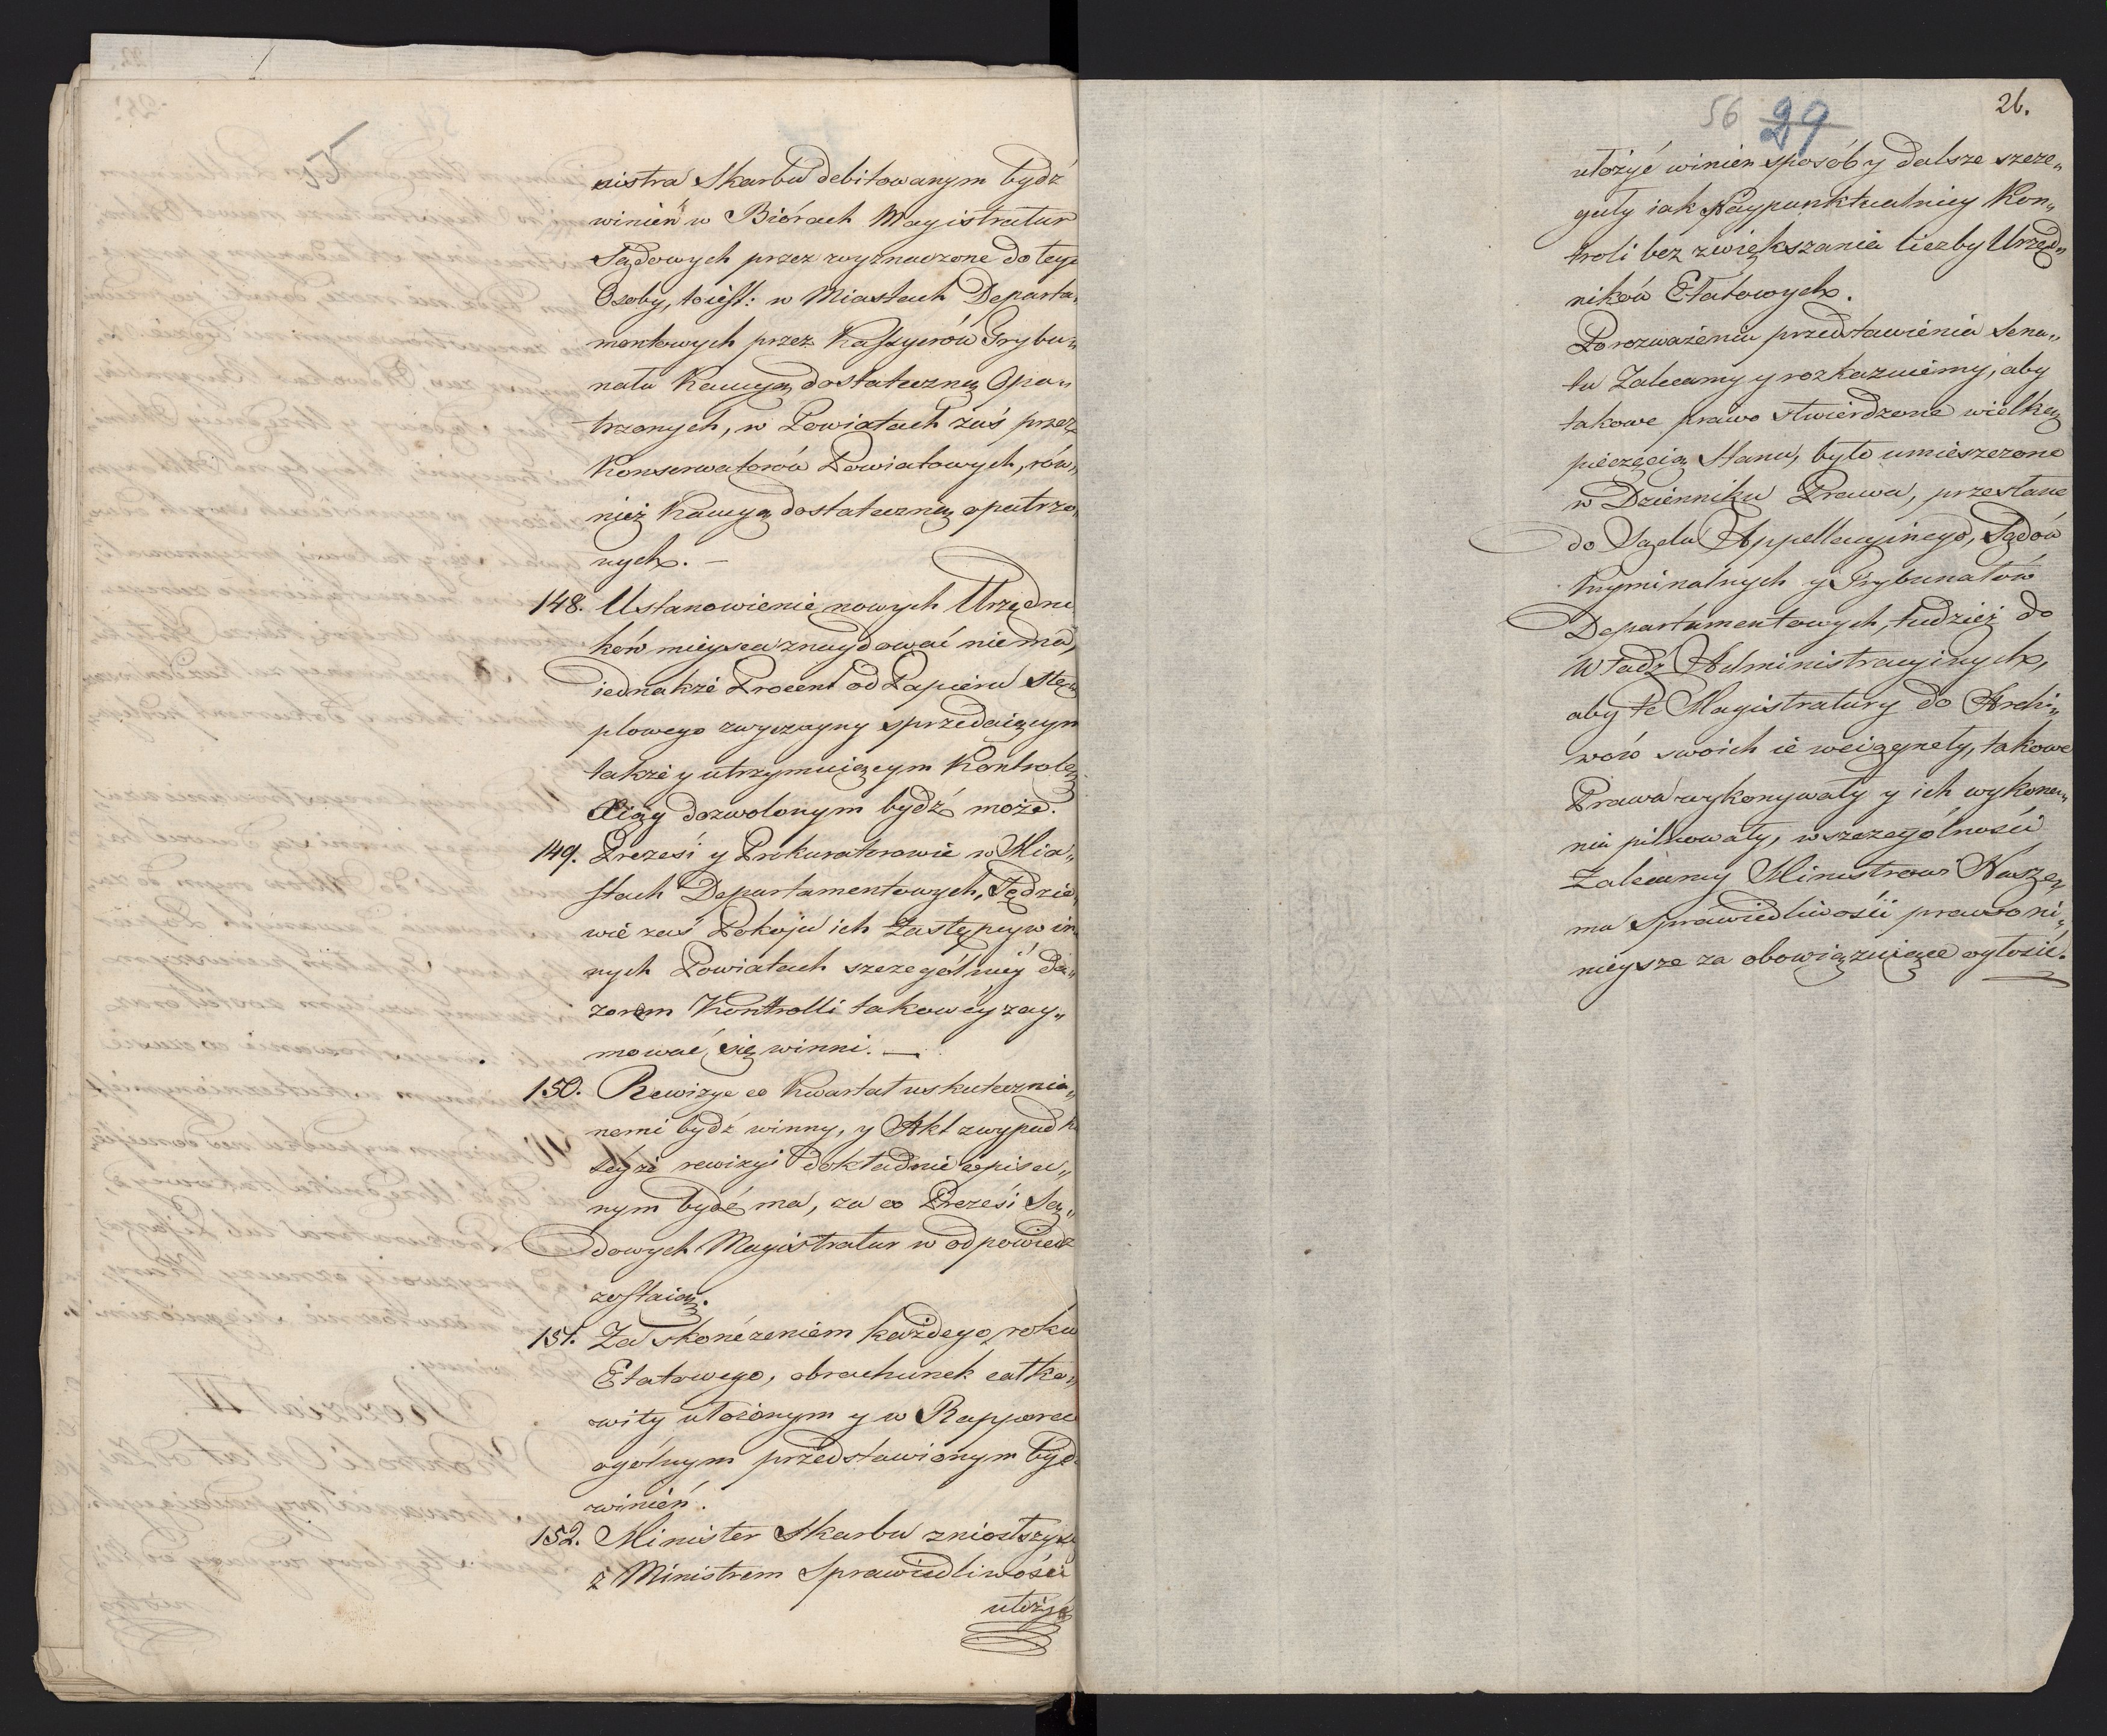 55
nistra Skarbu debitowanym bydź
winien w Biórach Magistratur
Sądowych przez wyznaczone do tego
Osoby, to iest: w Miastach Departa„
mentowych przez Kassyerów Trybu„
nału Kaucyą dostateczną Opa„
trzonych, w Powiatach zaś przez
Konserwatorów Powiatowych, rów„
nież Kaucyą dostateczną opatrzo„
nych. —
148. Ustanowienie nowych Urzędni
ków mieysca znaydować nie ma,
iednakże Procent od Papieru Stę„
plowego zwyczayny sprzedaiącym
także y utrzymuiącym Kontrolę
Xiąg dozwolonym bydź może.
149. Prezesi y Prokuratorowie w Mia„
stach Departamentowych, Sędzio„
wie zaś Pokoju ich Zastępcy w in„
nych Powiatach szczególniéy do„
zorem Kontrolli takowéy zay„
mować się winni. —
150. Rewizye co Kwartał uskutecznia„
nemi bydź winny, y Akt z wypadk
téyże rewizyi dokładnie opisa„
nym bydź ma, za co Prezesi Są„
dowych Magistratur w odpowiedz
zostaią.
151. Za skończeniem każdego roku
Etatowego, obrachunek całko„
wity ułożonym y w Rapporcie
ogólnym przedstawionym bydź
winien.
152. Minister Skarbu zniosłszy się
z Ministrem Sprawiedliwości
ułożyć
56 29
26.
ułożyć winien sposóby dalsze szcze„
guły iak Naypunktualniey Kon„
troli bez zwiększania liczby Urzęd„
ników Etatowych.
Po rozważeniu przedstawienia Sena„
tu Zalecamy y rozkazuiemy, aby
takowe prawo stwierdzone wielką
pieczęcią Stanu, było umieszczone
w Dzienniku Prawa, przesłane
do Sądu Appellacyinego, Sądów
Kryminalnych y Trybunałów
Departamentowych, tudzież do
Władz Administracyinych,
aby te Magistratury do Archi„
wów swoich ie wciągnęły, takowe
Prawa wykonywały y ich wykona„
nia pilnowały, w szczególności
Zalecamy Ministrowi Nasze„
mu Sprawiedliwości prawo ni„
nieysze za obowiązuiące ogłosić.